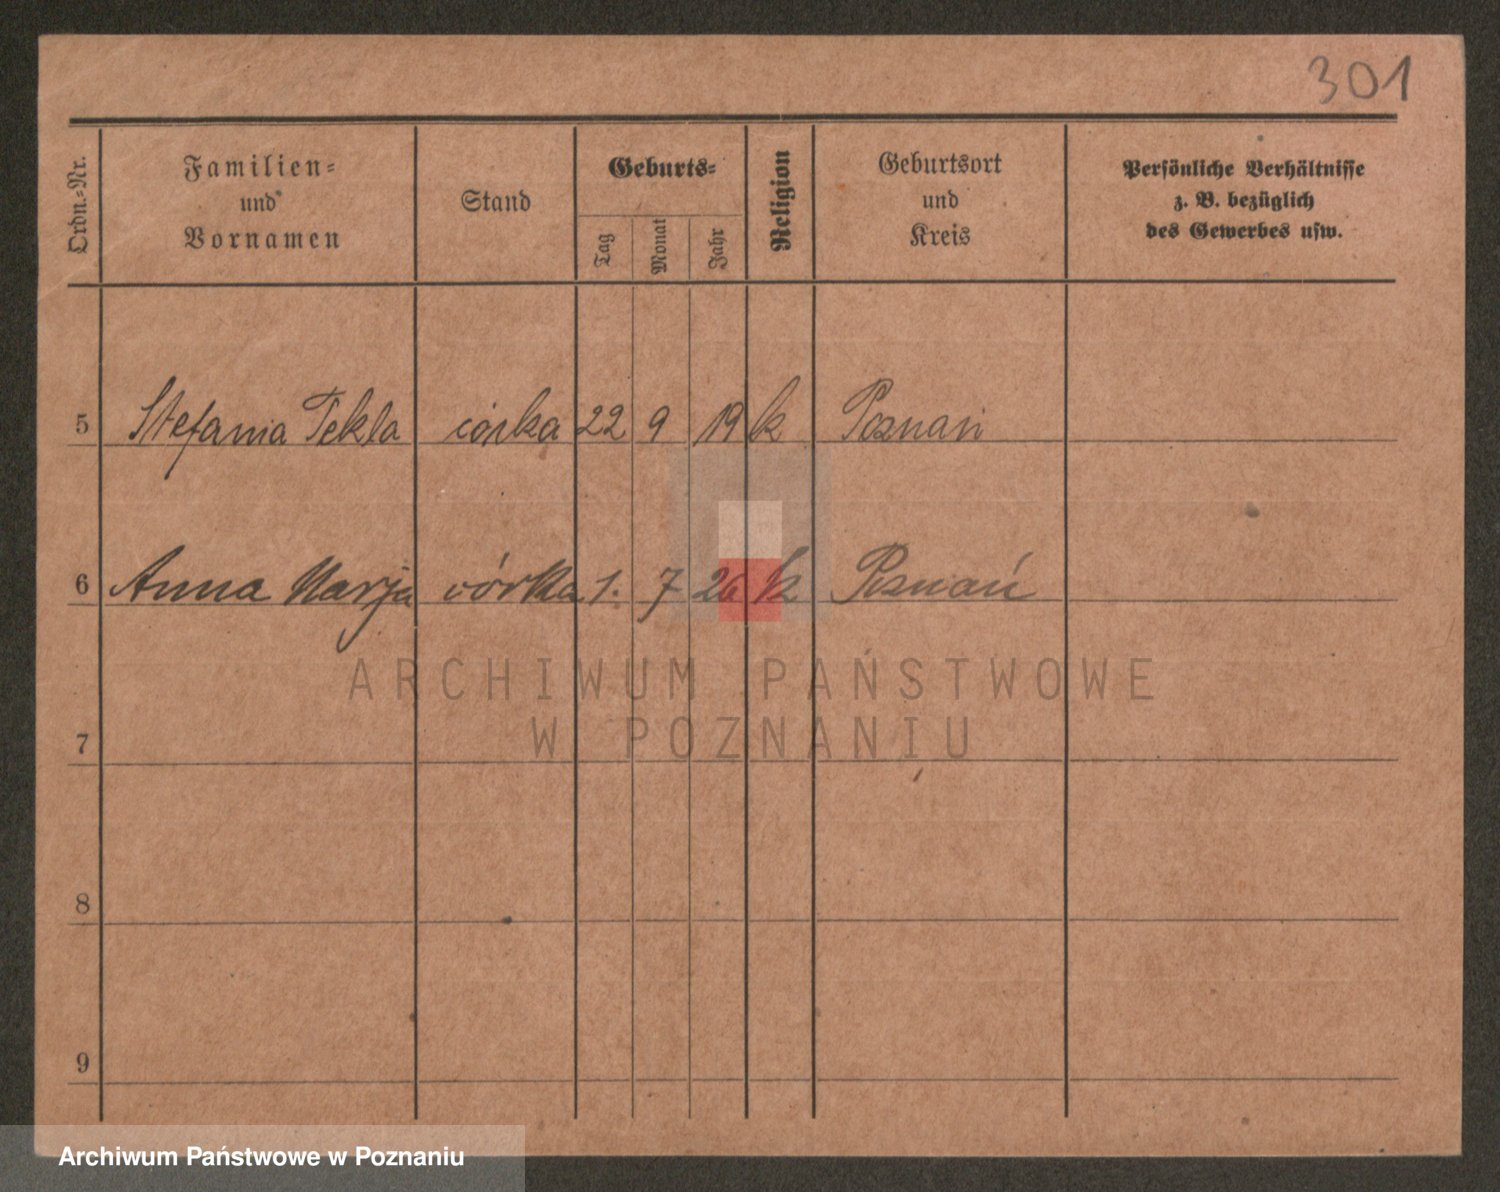 301
Ordn.-Nr.
Familien-
und
Vornamen
Stand
Geburts-
Tag
Monat
Jahr
Religion
Geburtsort
und
Kreis
Persönliche Verhältnisse
z. B. bezüglich
des Gewerbes usw.
5 Stefania Tekla córka 22 9 19 k Poznań
6 Anna Marja córka 1. 7 26 k Poznań
ARCHIWUM PAŃSTWOWE
W POZNANIU
7
8
9
Archiwum Państwowe w Poznaniu